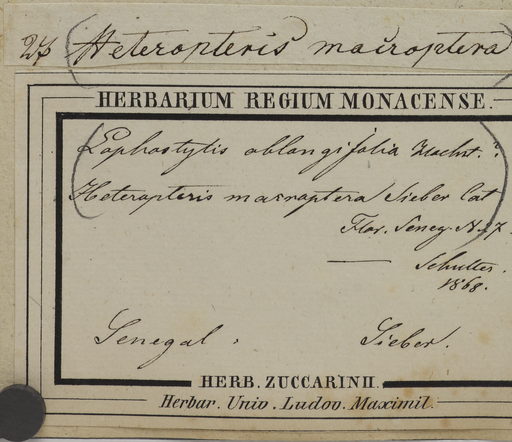 27 Heteropteris macroptera
HERBARIUM REGIUM MONACENSE.
Lophostylis oblongifolia Hochst. ?
Heteropteris macroptera Sieber Cat
Flor. Seneg. N. 27.
1868.
Senegal. Sieber.
HERB. ZUCCARINII.
Herbar. Univ. Ludov. Maximil.